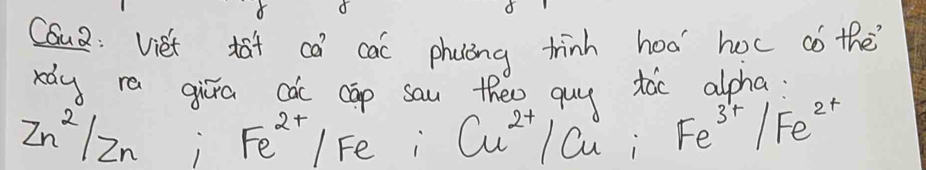 Câu 2: Viết tất cả các phương trình hoá học có thể
xảy ra giữa các cặp sau theo quy tắc alpha:
Zn²/Zn ; Fe²⁺/Fe ; Cu²⁺/Cu ; Fe³⁺/Fe²⁺